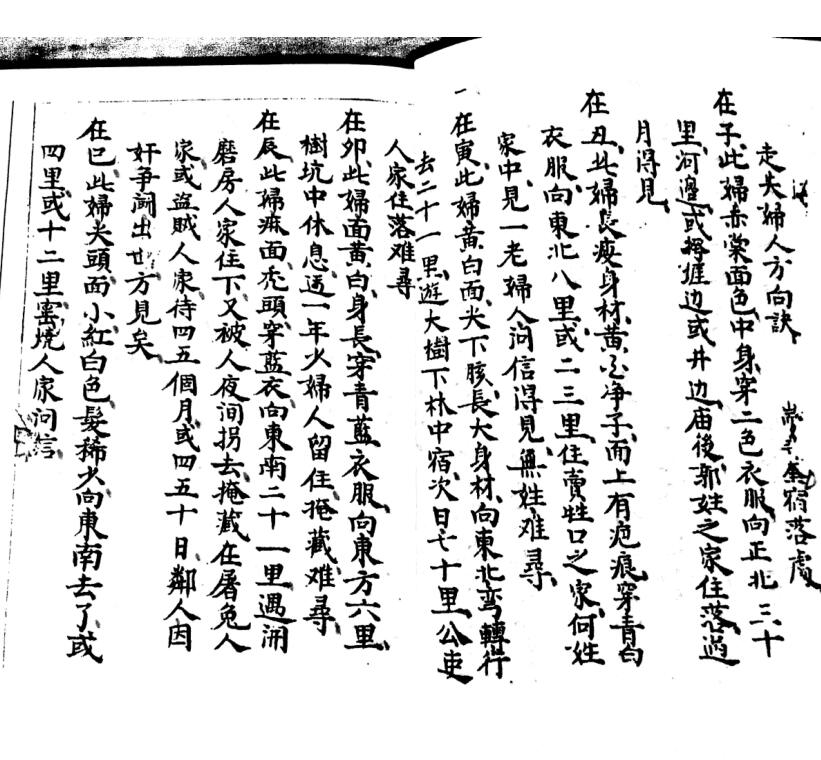 走失婦人方向訣
宿落處
在子此婦赤棠面色中身穿二色衣服向正北三十
里河邊或井边庙後郭姓之家住落過
月得見
在丑此婦長瘦身材黄白净子面上有疤痕穿青白
衣服向東北八里或二三里住賣牲口之家何姓
家中見一老婦人问信得見無姓难尋
在寅此婦黄白面尖下胲長大身材向東北弯轉行
去二十一里遊大樹下林中宿次日七十里公吏
人家住落难尋
在卯此婦面黄白身長穿青藍衣服向東方六里
樹坑中休息遠一年少婦人留住掩藏难尋
在辰此婦麻面秃頭穿藍衣向東南二十一里遇開
磨房人家住下又被人夜间拐去掩藏在屠兔人
家或盗贼人家待四五個月或四五十日鄰人因
奸争闹出方見矣
在巳此婦尖頭面小紅白色髮稀少向東南去了或
四里或十二里窑烧人家问信